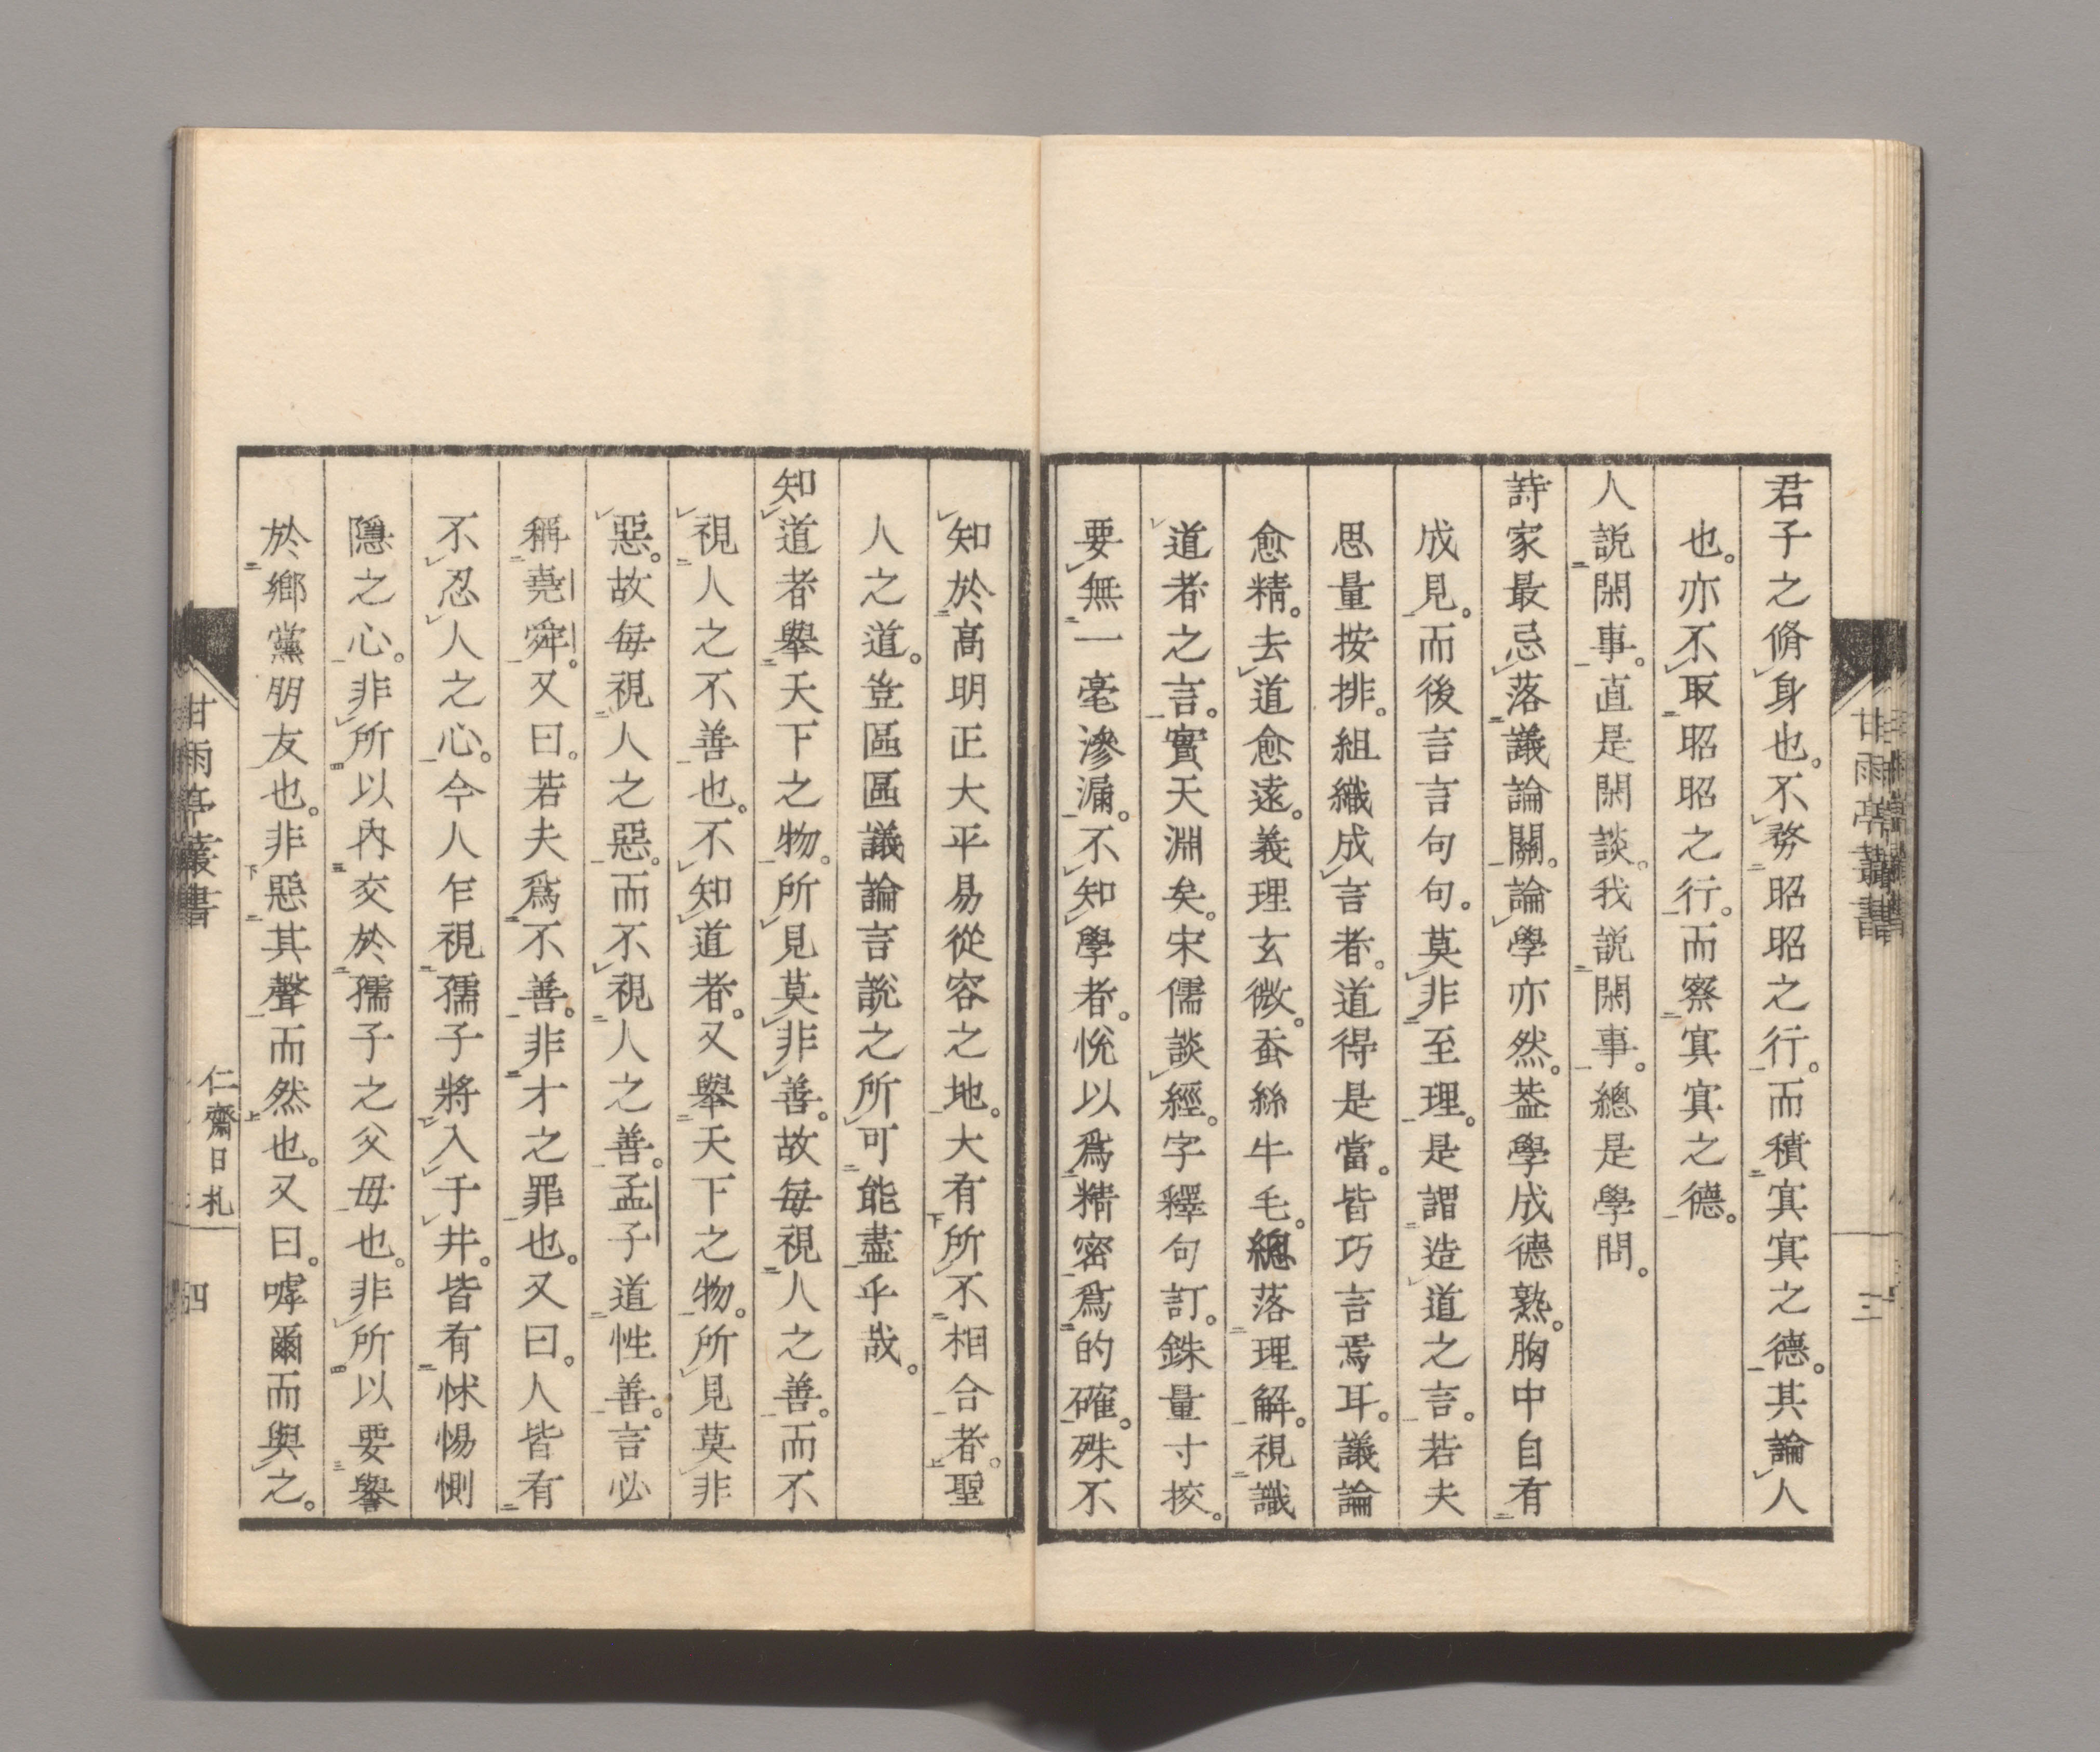 君子之脩身也。不務昭昭之行。而積㝠㝠之德。其論人
也。亦不取昭昭之行。而察㝠㝠之德。
人說閑事。直是閑談。我說閑事。總是學問。
詩家最忌落議論關。論學亦然。葢學成德熟。胸中自有
成見。而後言言句句。莫非至理。是謂造道之言。若夫
思量按排。組織成言者。道得是當。皆巧言焉耳。議論
愈精。去道愈遠。義理玄微。蚕絲牛毛。總落理解。視識
道者之言。實天淵矣。宋儒談經。字釋句訂。銖量寸挍。
要無一毫滲漏。不知學者。恱以爲精密爲的確。殊不
甘雨亭叢書
三
知於高明正大平易從容之地。大有所不相合者。聖
人之道。豈區區議論言說之所可能盡乎哉。
知道者舉天下之物。所見莫非善。故每視人之善。而不
視人之不善也。不知道者。又舉天下之物。所見莫非
惡。故每視人之惡。而不視人之善。孟子道性善。言必
稱堯舜。又曰。若夫爲不善。非才之罪也。又曰。人皆有
不忍人之心。今人乍視孺子將入于井。皆有怵惕惻
隱之心。非所以內交於孺子之父母也。非所以要譽
於鄉黨朋友也。非惡其聲而然也。又曰。嘑爾而與之。
甘雨亭叢書
仁齋日札
四